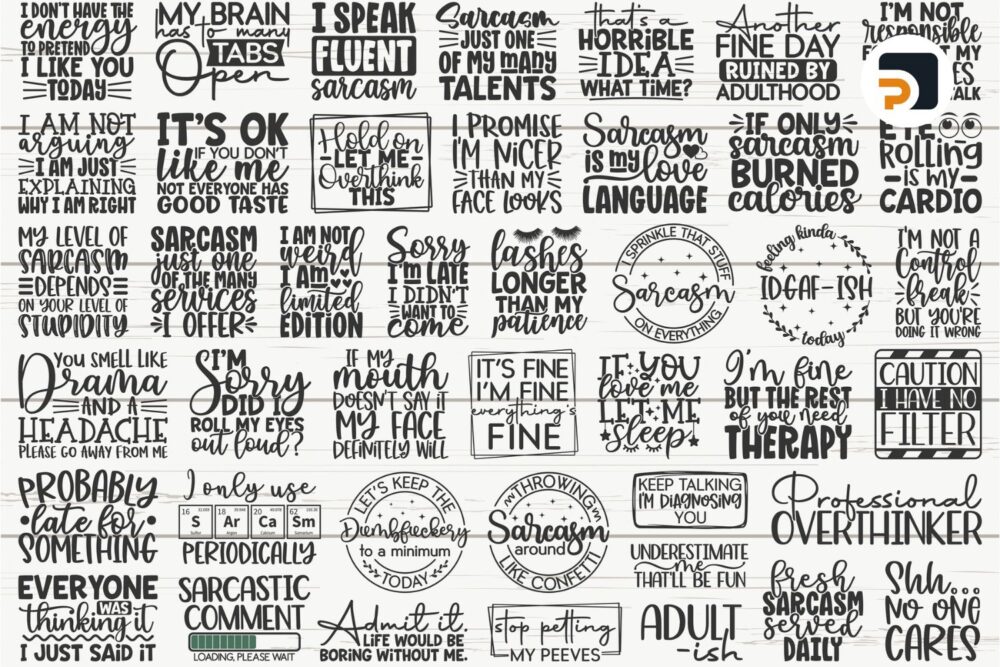 I DON'T HAVE THE
energy
TO PRETEND
I LIKE YOU
TODAY
MY BRAIN
has to many
TABS
Open
I SPEAK
FLUENT
sarcasm
Sarcasm
JUST ONE
OF MY many
TALENTS
that's a
HORRIBLE
IDEA
WHAT TIME?
Another
FINE DAY
RUINED BY
ADULTHOOD
I'M NOT
responsible
MY
ALK
P
I AM NOT
arguing
I AM JUST
EXPLAINING
WHY I AM RIGHT
IT'S OK
IF YOU DON'T
like me
NOT EVERYONE HAS
GOOD TASTE
Hold on
LET ME
Overthink
THIS
I PROMISE
I'M NICER
THAN MY
FACE LOOKS
Sarcasm
is my
love
LANGUAGE
IF ONLY
sarcasm
BURNED
calories
EYE
Rolling
is MY
CARDIO
MY LEVEL OF
SARCASM
DEPENDS
ON YOUR LEVEL OF
STUPIDITY
SARCASM
just one
OF THE MANY
services
I OFFER
I AM NOT
weird
I AM
limited
EDITION
Sorry
I'M LATE
I DIDN'T
WANT TO
come
lashes
LONGER
THAN MY
patience
I SPRINKLE THAT STUFF
Sarcasm
ON EVERYTHING
feeling kinda
IDGAF-ISH
today
I'M NOT A
Control
freak
BUT YOU'RE
DOING IT WRONG
YOU SMELL LIKE
Drama
AND A
HEADACHE
PLEASE GO AWAY FROM ME
I'M
Sorry
DID I
ROLL MY EYES
out loud?
IF MY
mouth
DOESN'T SAY IT
MY FACE
DEFINITELY WILL
IT'S FINE
I'M FINE
everything's
FINE
IF YOU
love me
LET ME
sleep
I'm fine
BUT THE REST
of you need
THERAPY
CAUTION
I HAVE NO
FILTER
PROBABLY
late for
SOMETHING
I only use
S Ar Ca Sm
PERIODICALLY
LET'S KEEP THE
Dumbfuckery
to a minimum
TODAY
THROWING
Sarcasm
around
LIKE CONFETTI
KEEP TALKING
I'M DIAGNOSING
YOU
UNDERESTIMATE
me
THAT'LL BE FUN
Professional
OVERTHINKER
EVERYONE
WAS
thinking it
I JUST SAID IT
SARCASTIC
COMMENT
LOADING, PLEASE WAIT
Admit it.
LIFE WOULD BE
BORING WITHOUT ME.
stop petting
MY PEEVES
ADULT
-ish
fresh
SARCASM
served
DAILY
Shh...
NO ONE
CARES